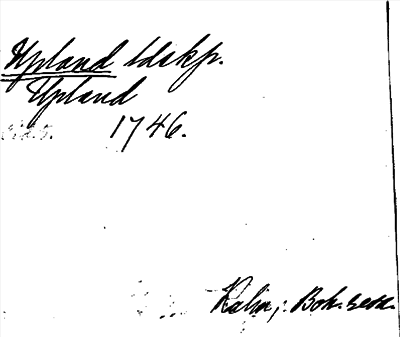 Upland ldskp.
Upland
1746.
Kalm, Boh. resa.